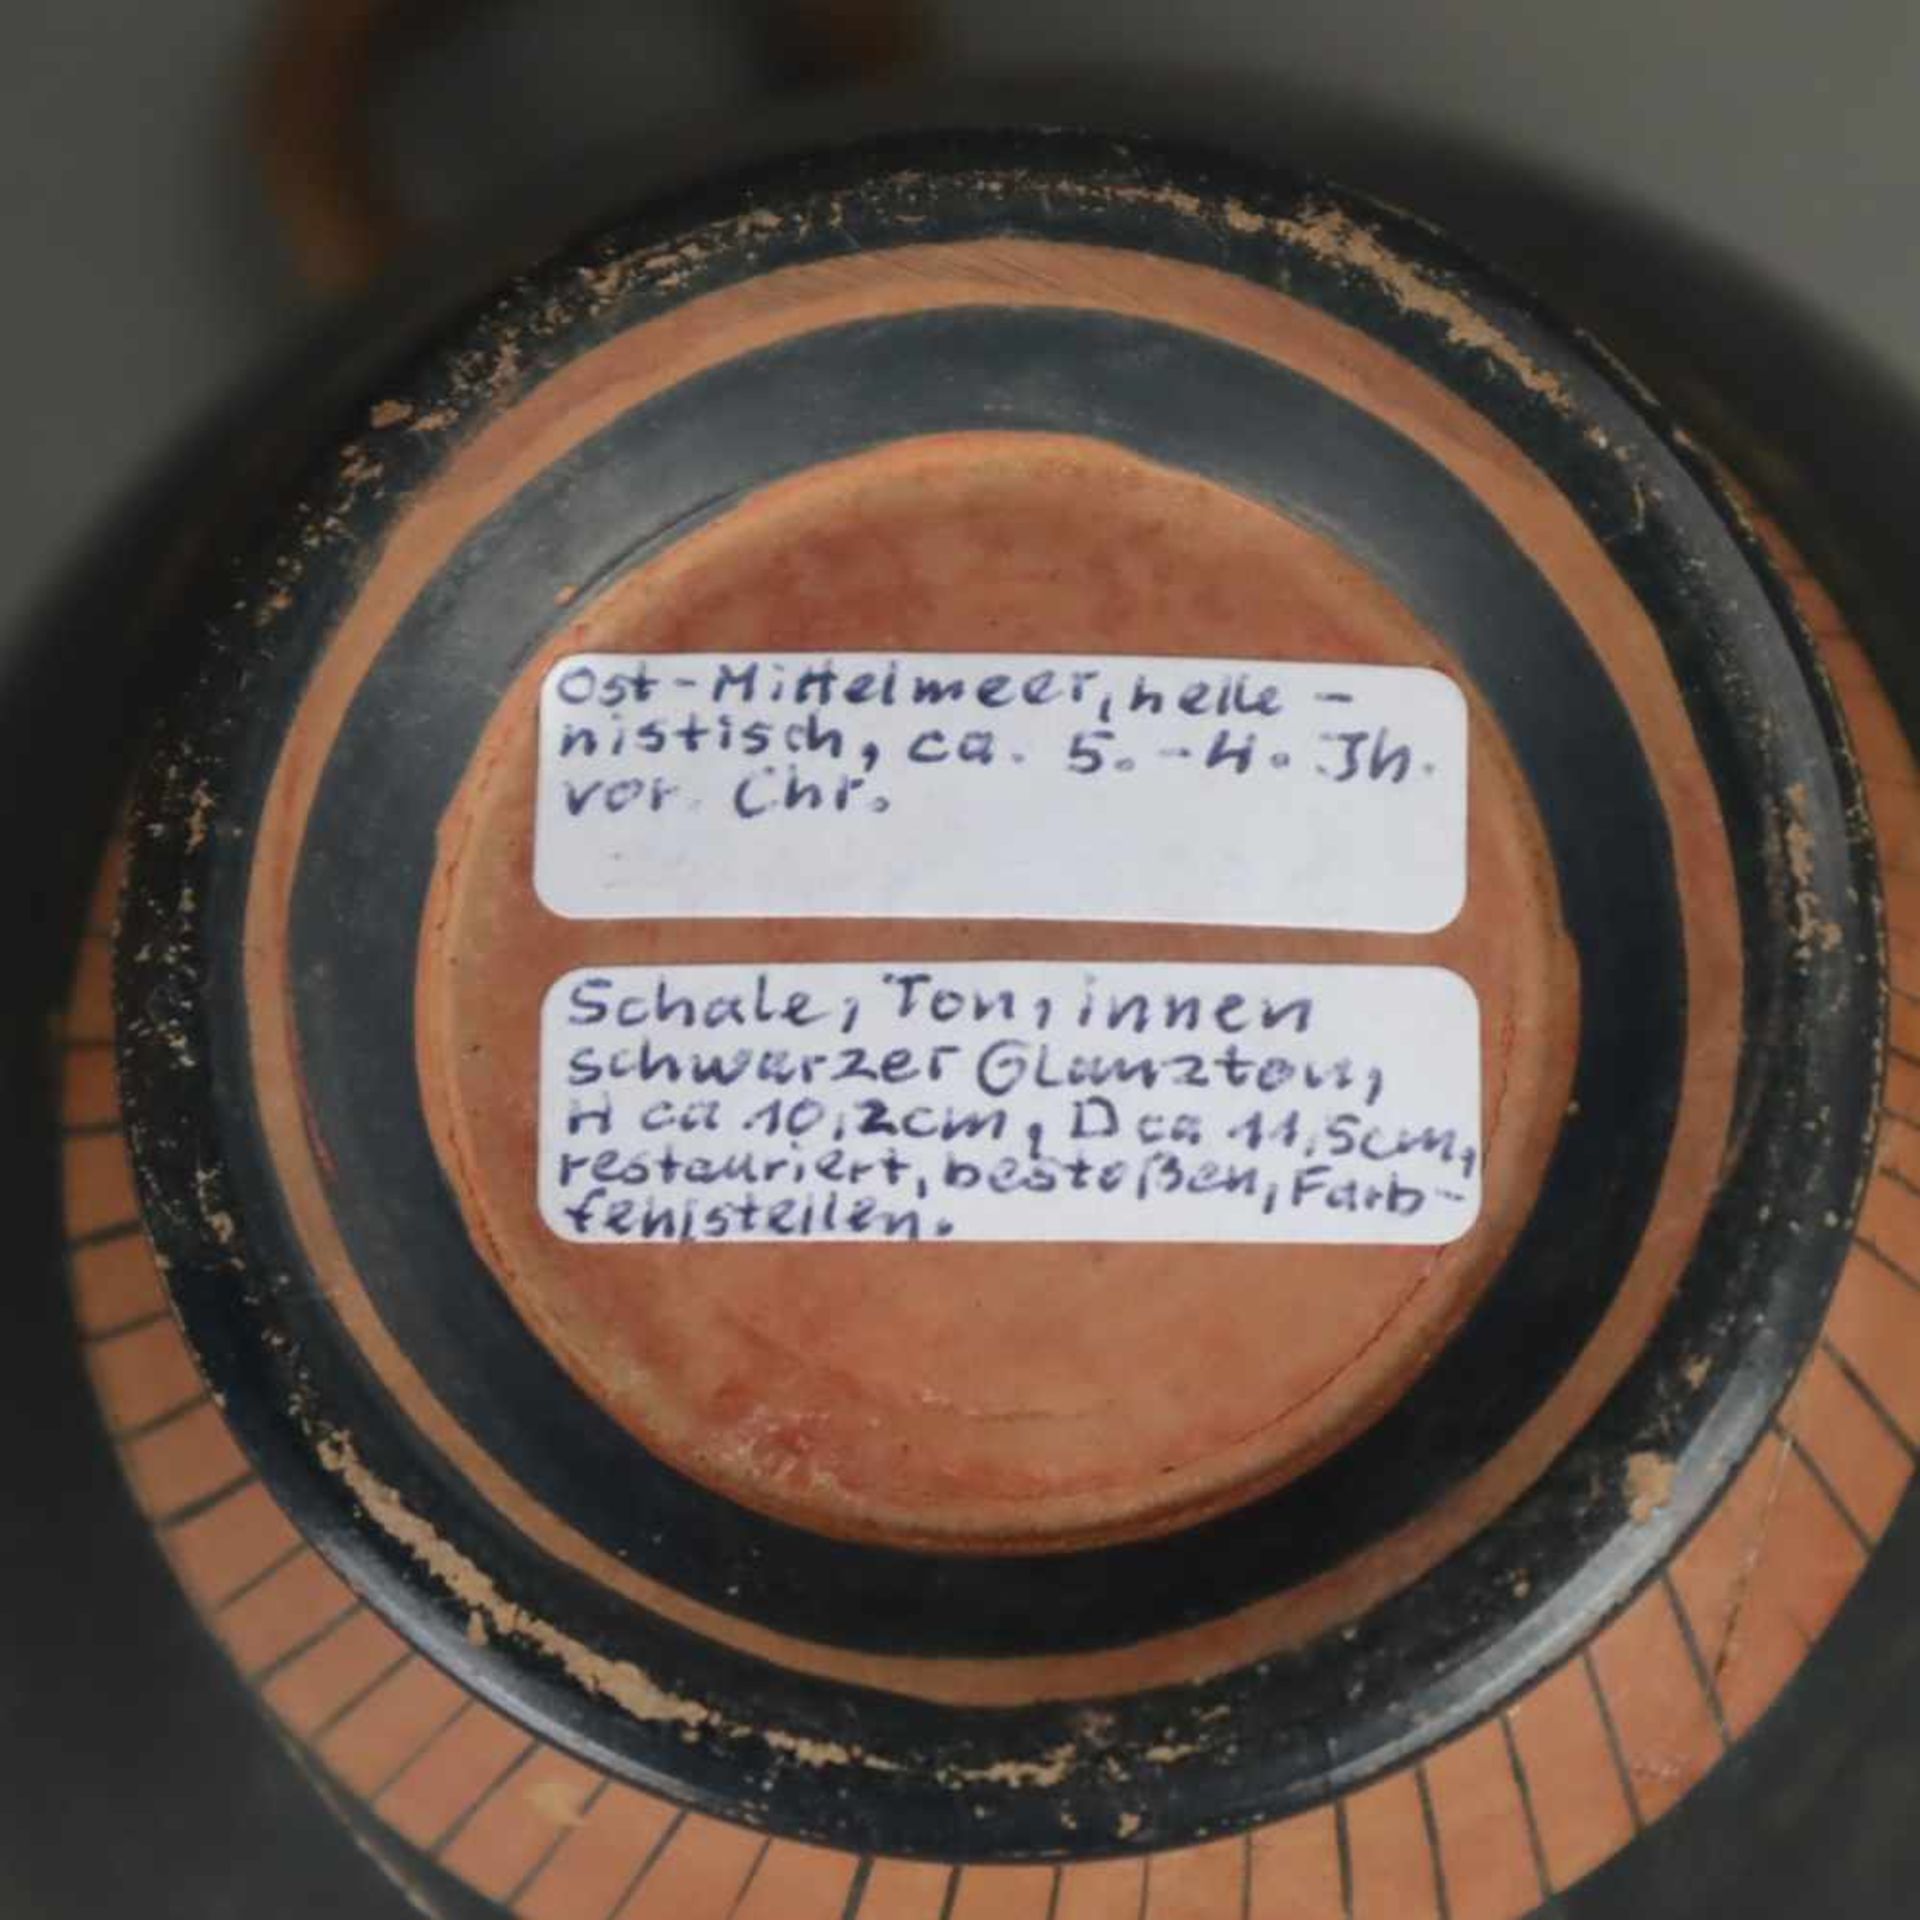 Ost-Mittelmeer, helle-
nistisch, ca. 5.-4. Jh.
vor. Chr.
Schale, Ton, innen
schwarzer Glanzton,
H ca 10,2cm, D ca 11,5cm,
restauriert, bestoßen, Farb-
fehlstellen.